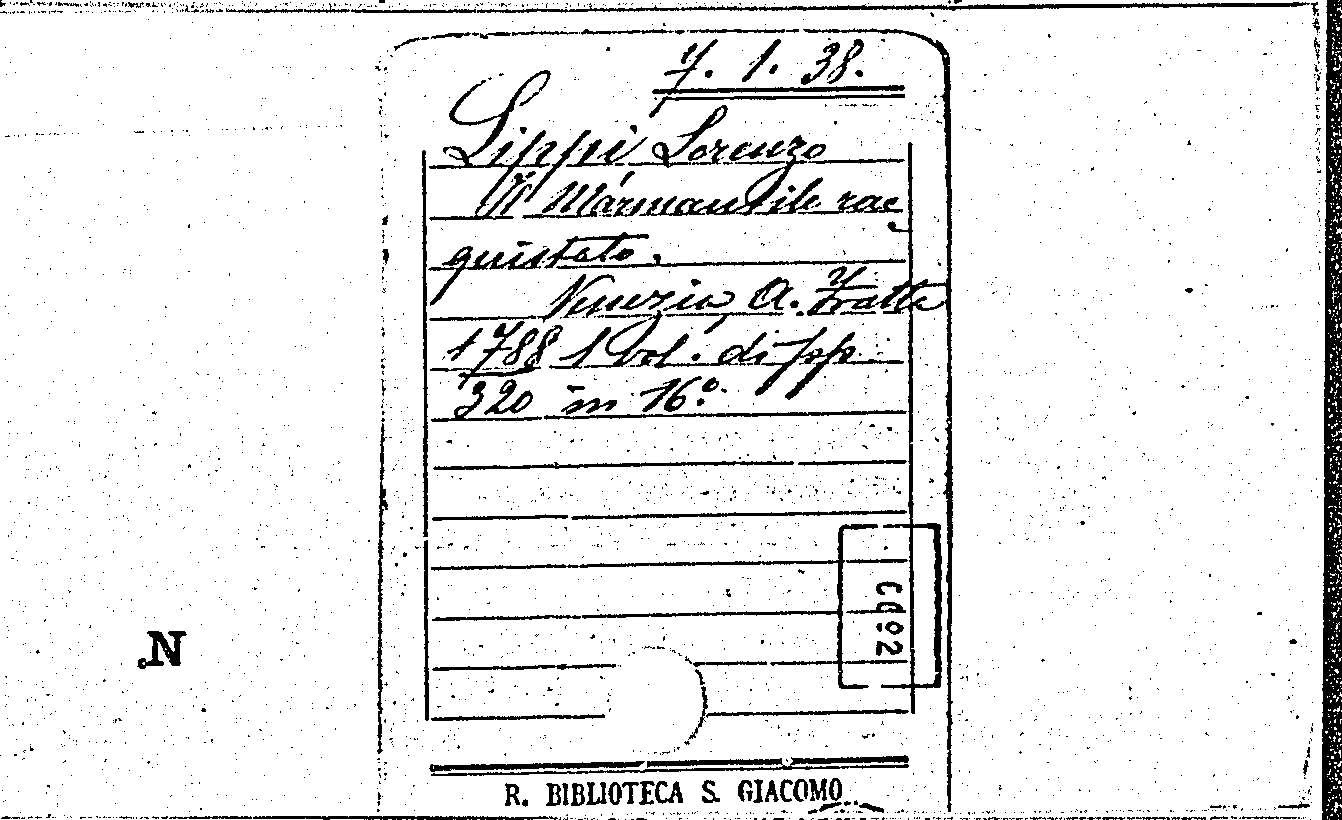 7. 1. 38.
Lippi Lorenzo
Il Malmantile rac
quistato.
Venezia, A. Zatta
1788 1 vol. di pp.
320 in 16º.
N.
R. BIBLIOTECA S. GIACOMO